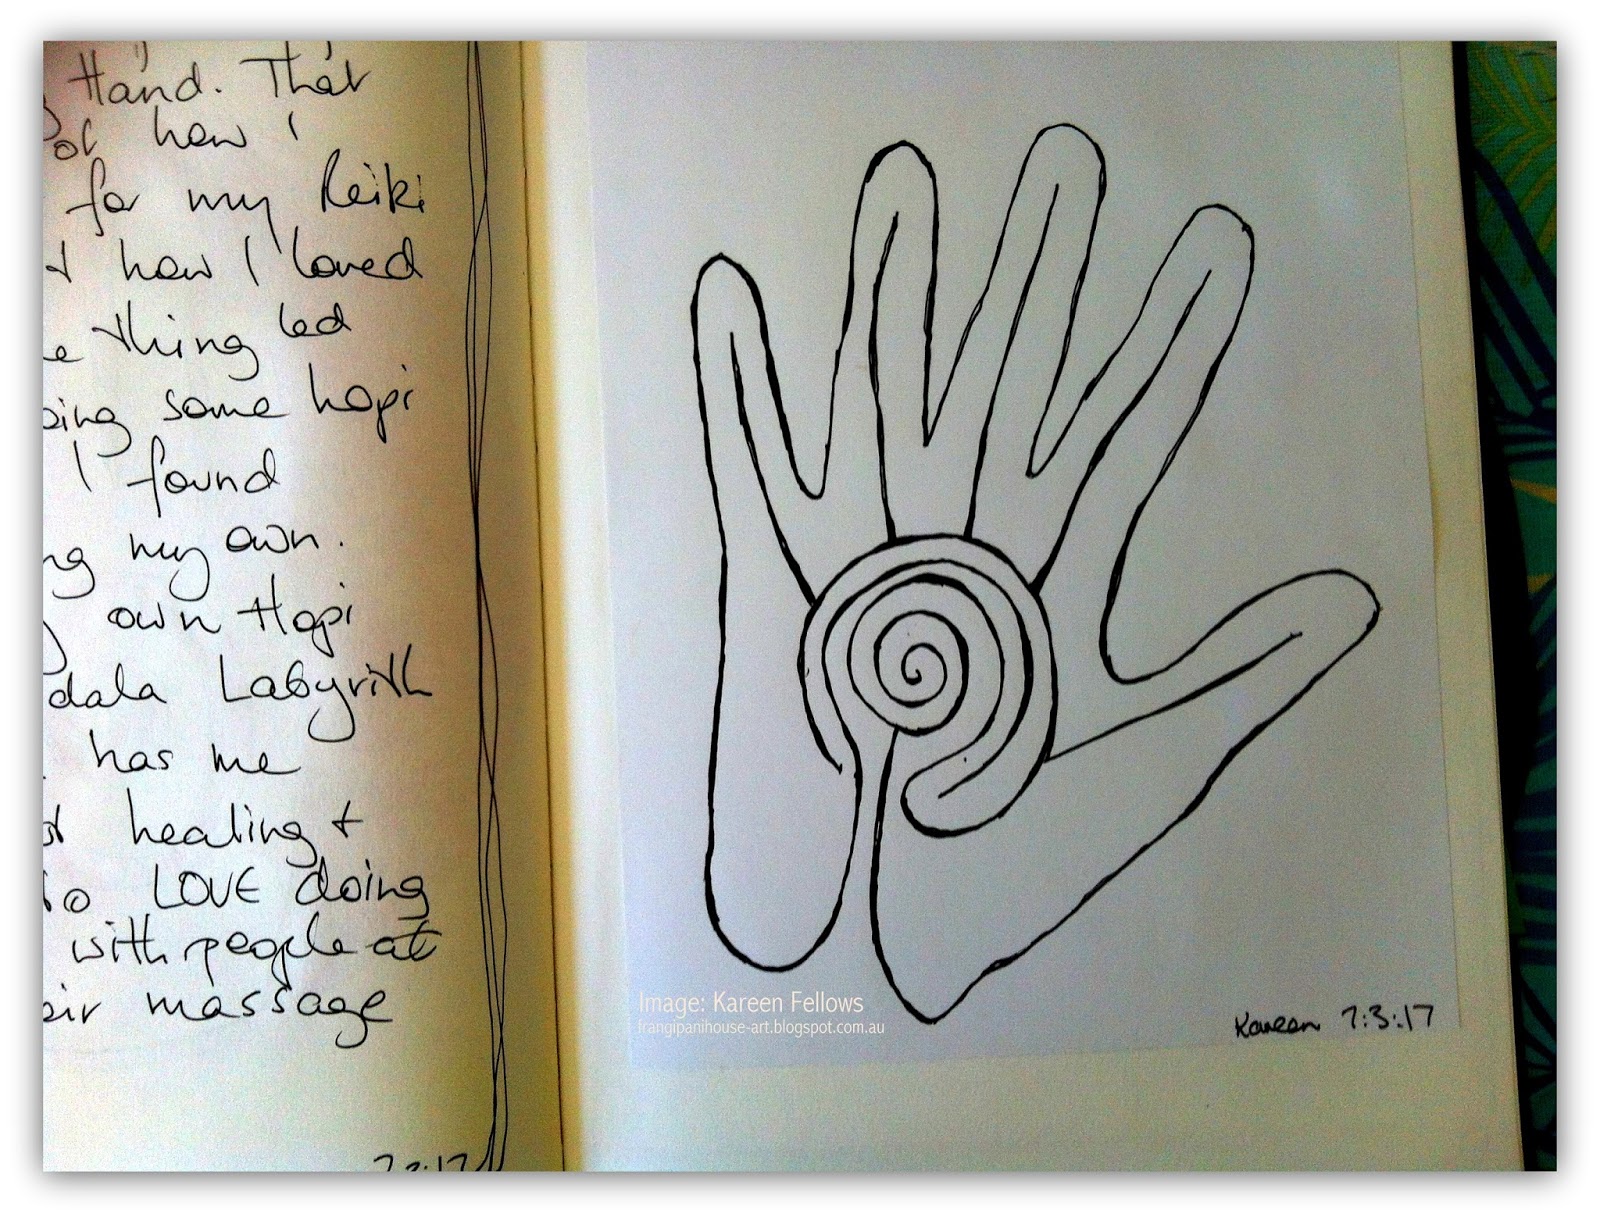 Hand. That
of how I
for my Reiki
how I loved
thing led
some hopi
I found
my own.
own Hopi
dala Labyrith
has me
healing +
LOVE doing
with people at
massage
Image: Kareen Fellows
frangipanihouse-art.blogspot.com.au
Kareen 7:3:17